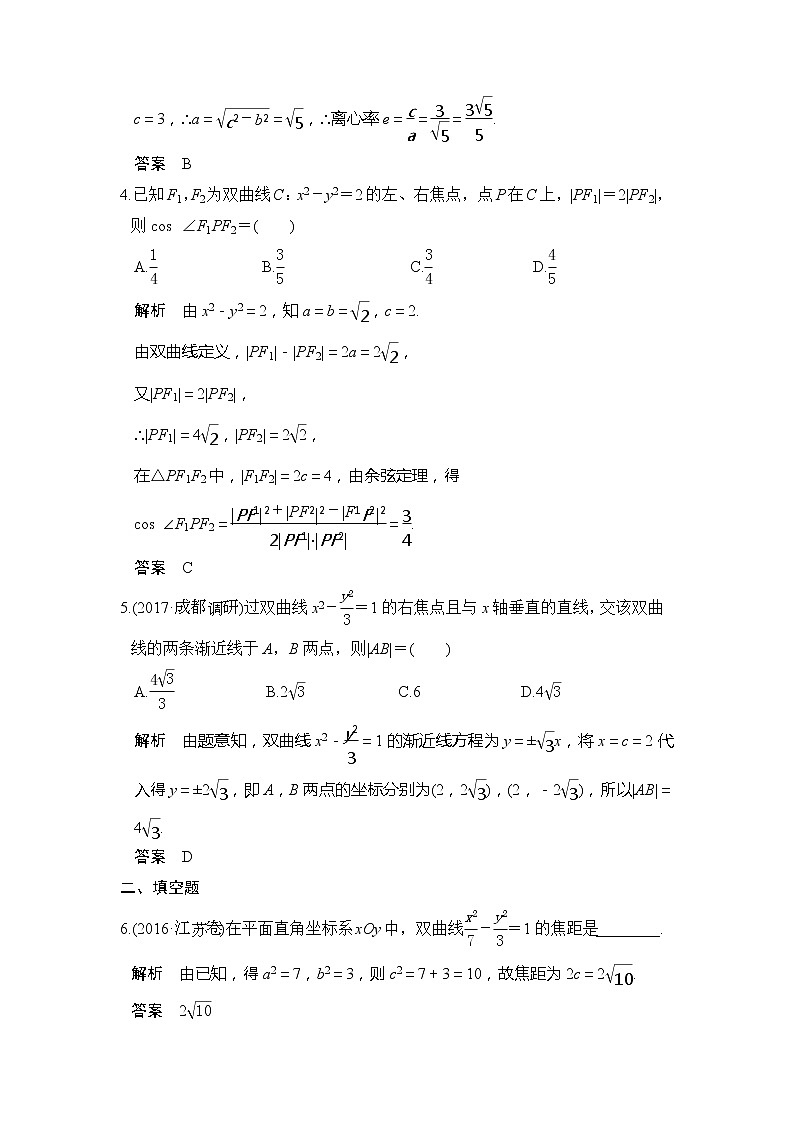 c=3,∴a=√(c²-b²)=√5,∴离心率 e=c/a=3/√5=3√5/5.
答案 B
4.已知F₁,F₂为双曲线C:x²-y²=2的左、右焦点,点P在C上,|PF₁|=2|PF₂|,
则 cos ∠F₁PF₂=( )
A.1/4 B.3/5 C.3/4 D.4/5
解析 由 x²-y²=2,知 a=b=√2,c=2.
由双曲线定义,|PF₁|-|PF₂|=2a=2√2,
又|PF₁|=2|PF₂|,
∴|PF₁|=4√2,|PF₂|=2√2,
在△PF₁F₂中,|F₁F₂|=2c=4,由余弦定理,得
cos ∠F₁PF₂=(|PF₁|²+|PF₂|²-|F₁F₂|²)/(2|PF₁|·|PF₂|)=3/4.
答案 C
5.(2017·成都调研)过双曲线 x²-y²/3=1的右焦点且与x轴垂直的直线,交该双曲
线的两条渐近线于A,B两点,则|AB|=( )
A.4√3/3 B.2√3 C.6 D.4√3
解析 由题意知,双曲线 x²-y²/3=1的渐近线方程为 y=±√3x,将 x=c=2代
入得 y=±2√3,即A,B两点的坐标分别为(2,2√3),(2,-2√3),所以|AB|=
4√3.
答案 D
二、填空题
6.(2016·江苏卷)在平面直角坐标系xOy中,双曲线x²/7-y²/3=1的焦距是________.
解析 由已知,得 a²=7,b²=3,则 c²=7+3=10,故焦距为 2c=2√10.
答案 2√10